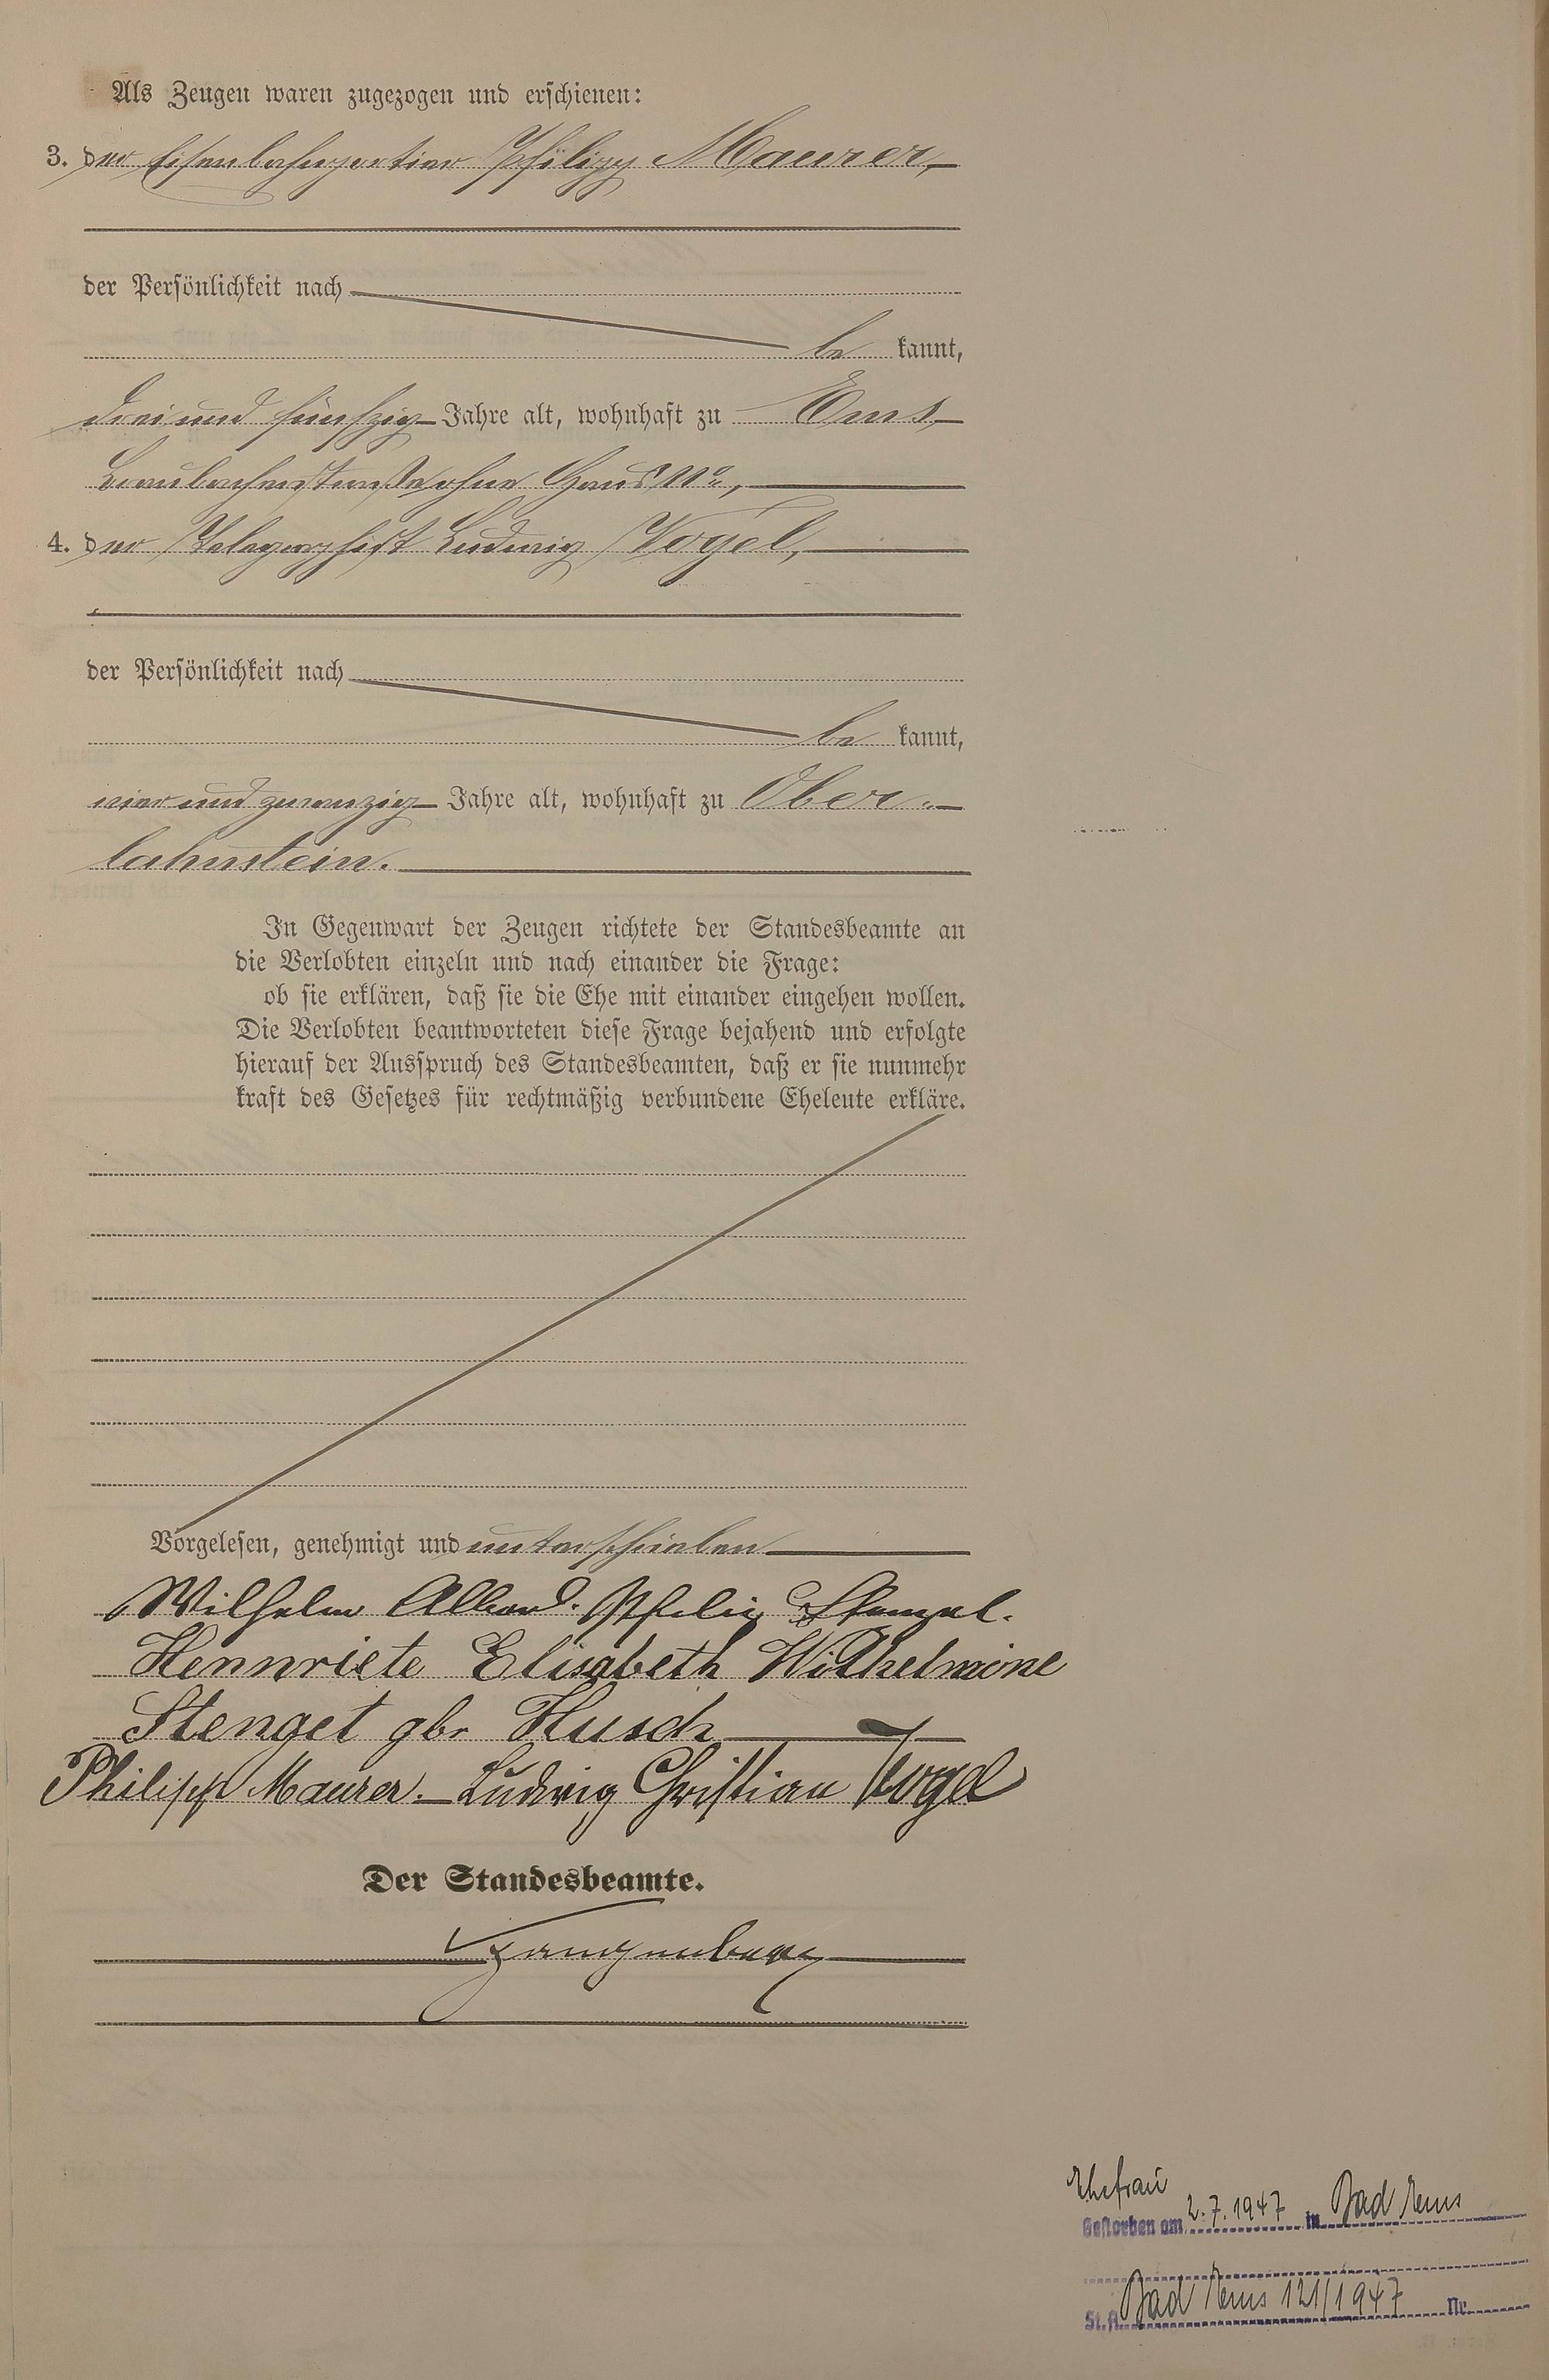 Als Zeugen waren zugezogen und erschienen:
3. der Eisenbahnportier Philipp Maurer,
der Persönlichkeit nach
be kannt,
drei und fünfzig Jahre alt, wohnhaft zu Ems,
straße ohne Haus No,
4. der Telegraphist Ludwig Vogel,
der Persönlichkeit nach
be kannt,
vier und zwanzig Jahre alt, wohnhaft zu Ober-
lahnstein.
In Gegenwart der Zeugen richtete der Standesbeamte an
die Verlobten einzeln und nach einander die Frage:
ob sie erklären, daß sie die Ehe mit einander eingehen wollen.
Die Verlobten beantworteten diese Frage bejahend und erfolgte
hierauf der Ausspruch des Standesbeamten, daß er sie nunmehr
kraft des Gesetzes für rechtmäßig verbundene Eheleute erkläre.
Vorgelesen, genehmigt und unterschrieben
Wilhelm Stengel.
Hennriete Elisabeth Wilhelmine
Stengel gbr Husch
Philipp Maurer. Ludwig Christian Vogel
Der Standesbeamte.
Ehefrau
Gestorben am 2.7.1947 in Bad Ems
St.A. Bad Ems 121/1947 Nr.